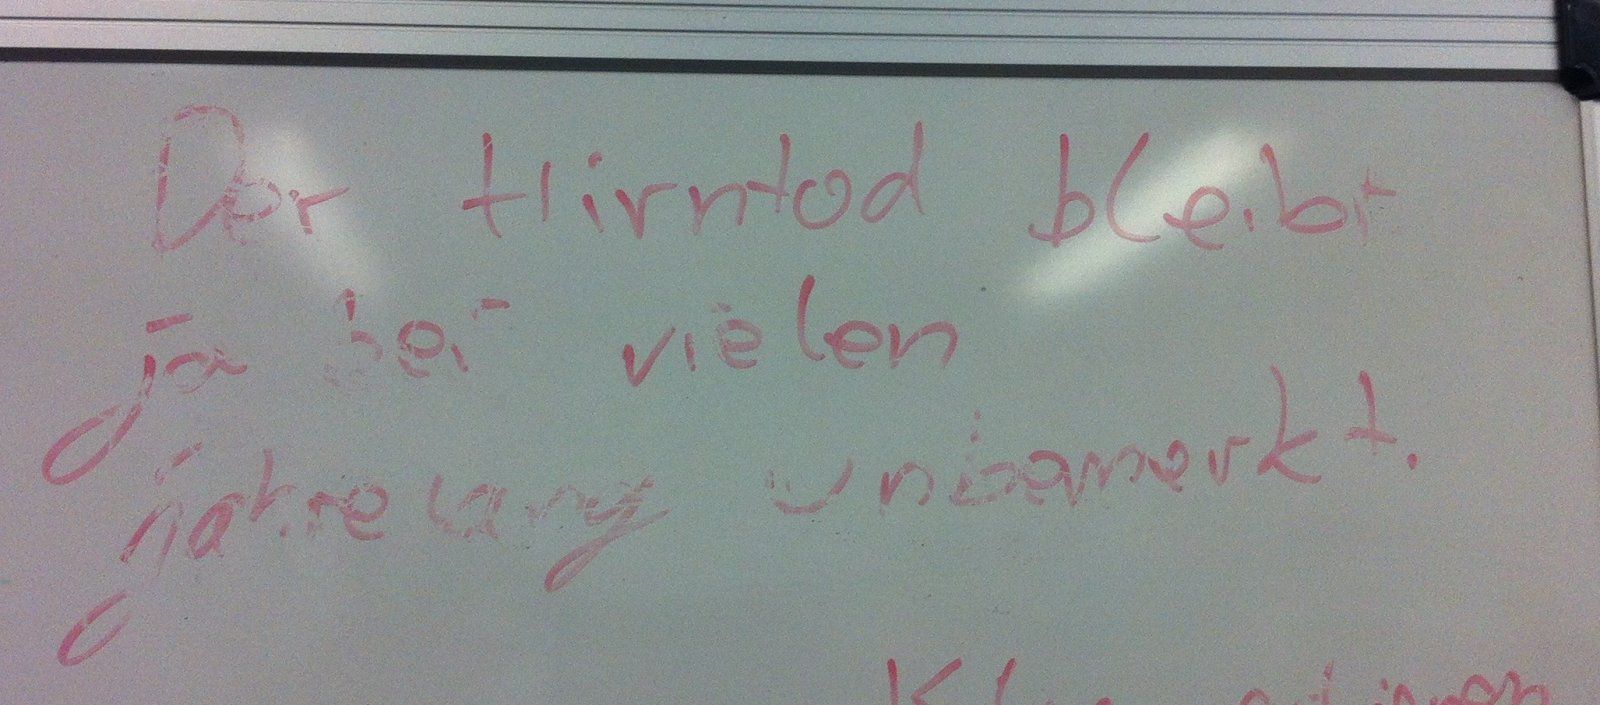 Der Hirntod bleibt
ja bei vielen
jahrelang unbemerkt.